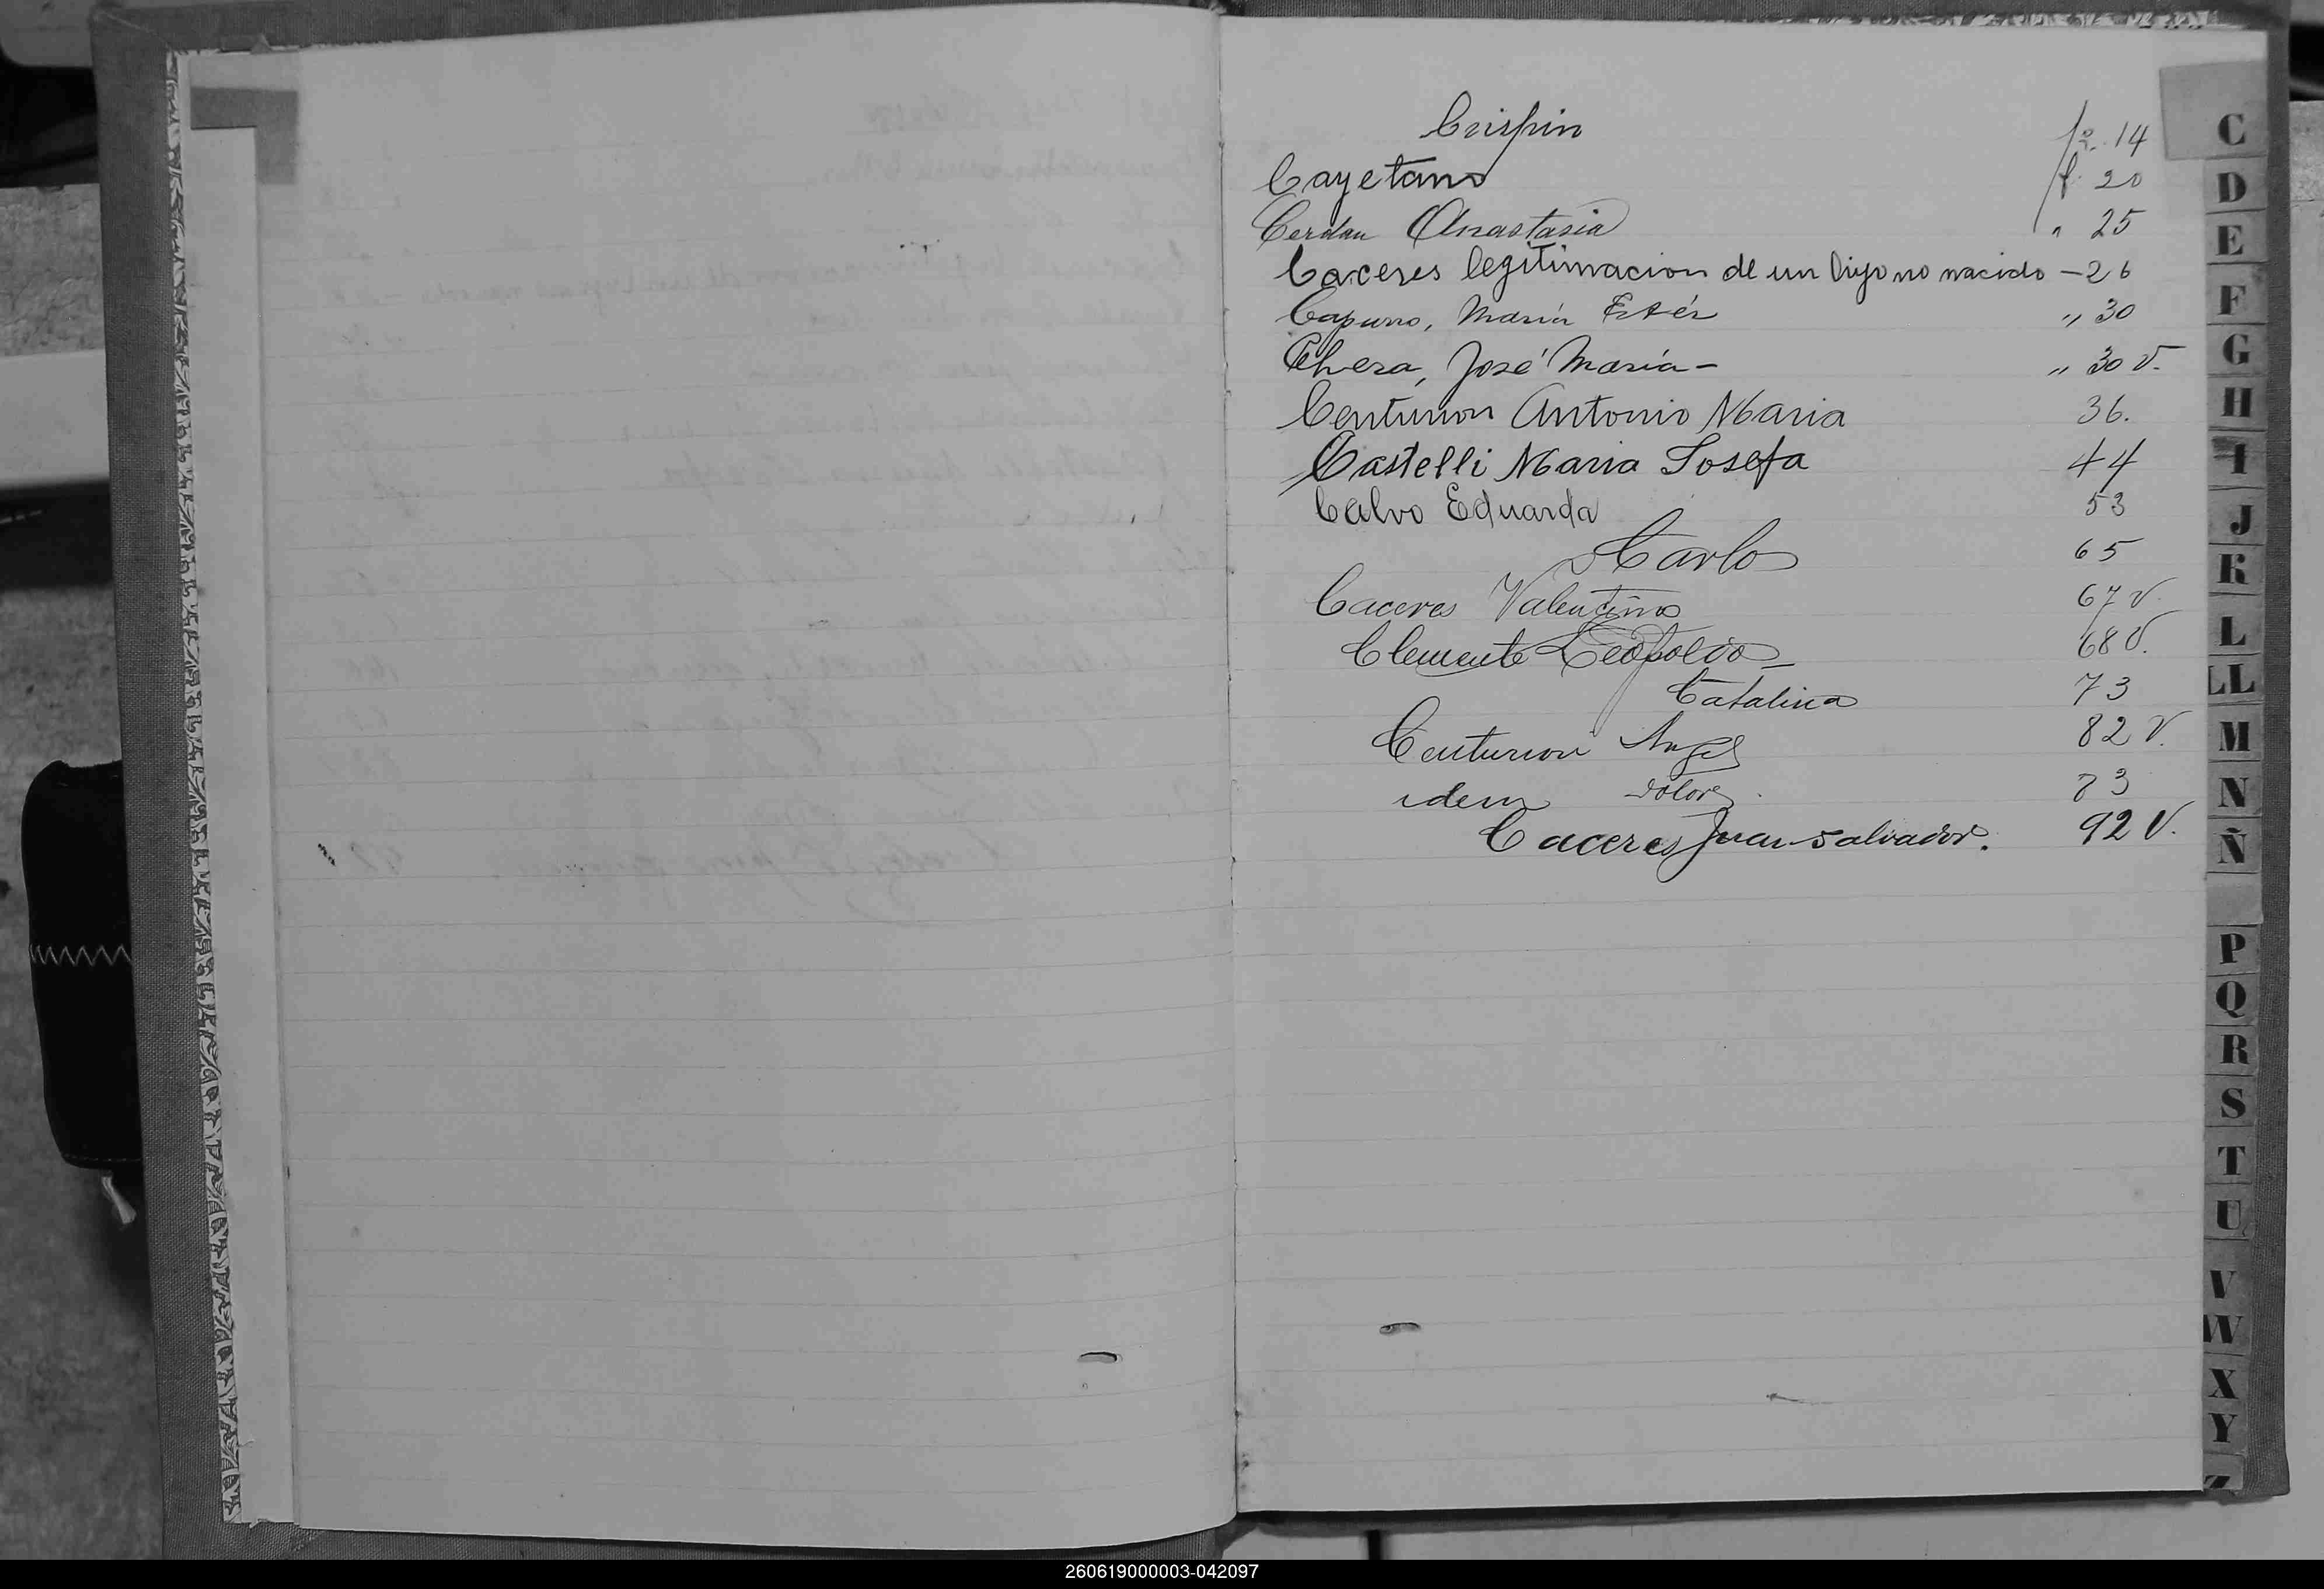 Crispin fo. 14
Cayetano f. 20
Cerdan Anastasia " 25
Caceres legitimacion de un hijo no nacido - 26
Capurro, María Estér " 30
Chera, José María - " 30 v.
Centurion Antonio Maria 36.
Castelli Maria Josefa 44
Calvo Eduarda 53
Carlo 65
Caceres Valentino 67 v.
Clemente Leopoldo - 68 v.
Catalina 73
Centurion Angel 82 v.
idem Dolores 83
Caceres Juan Salvador. 92 v.
C
D
E
F
G
H
I
J
K
L
LL
M
N
Ñ
P
Q
R
S
T
U
V
W
X
Y
Z
260619000003-042097